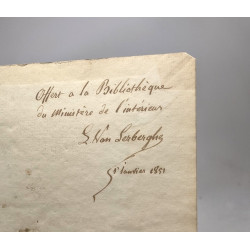 Offert a la Bibliothèque
du Ministère de l'intérieur
L. Van Lerberghe
1r Janvier 1851